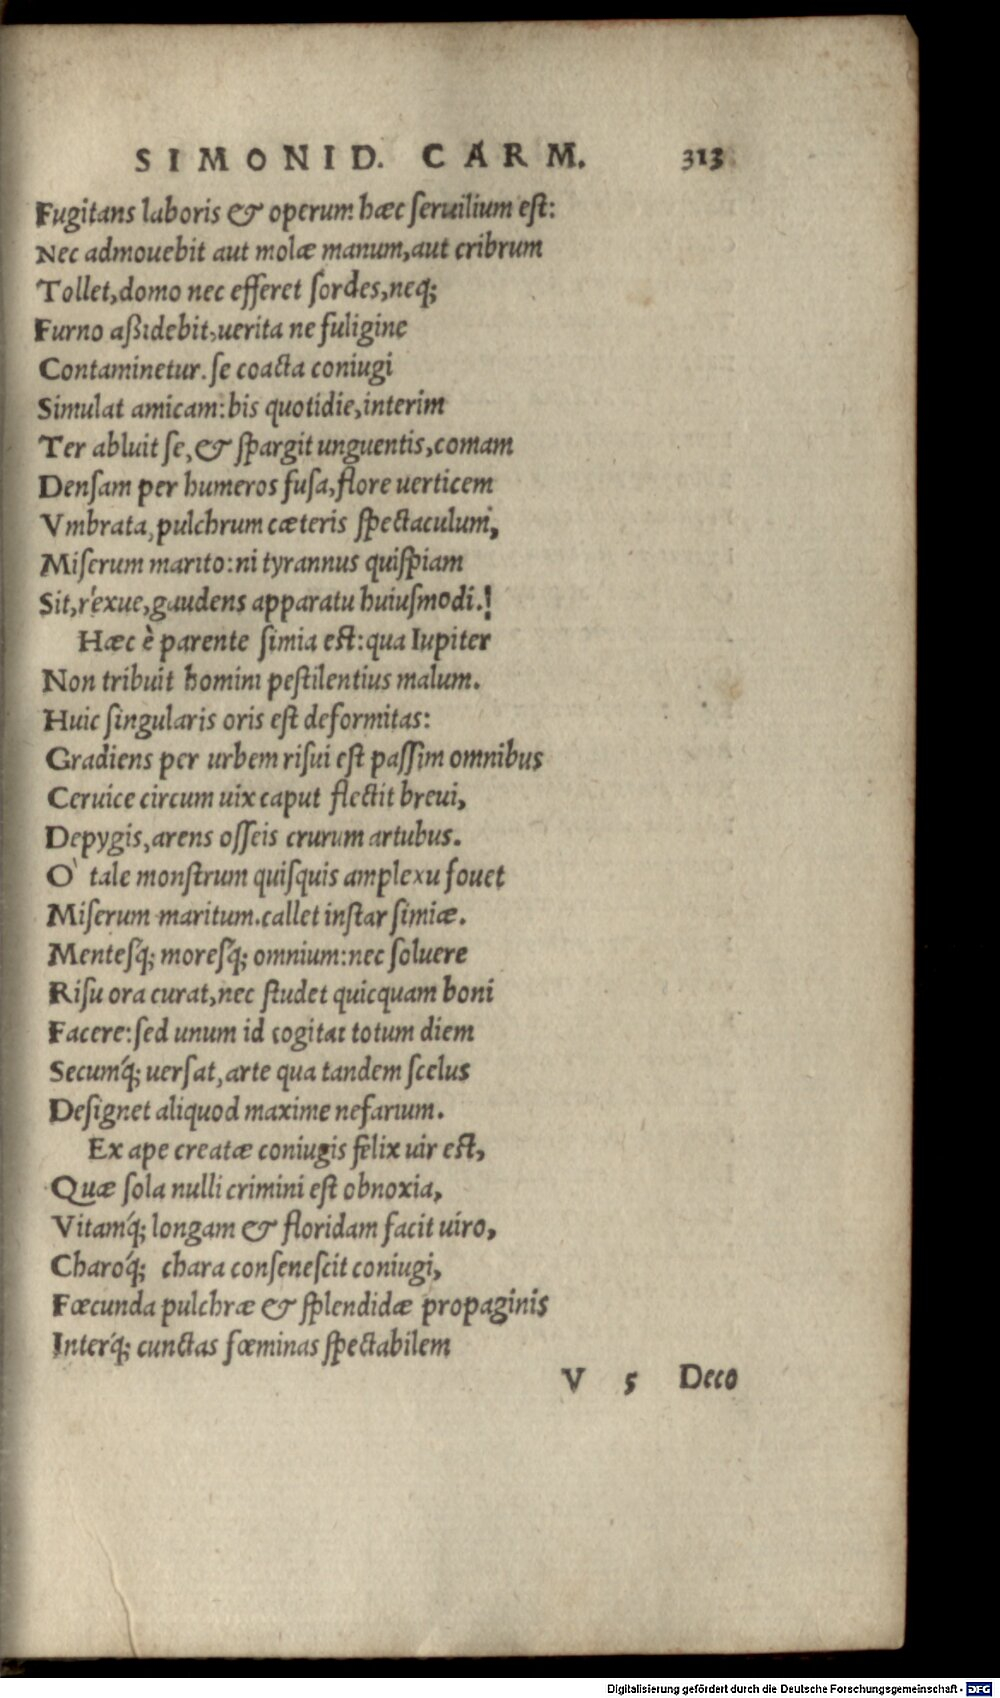 SIMONID. CARM. 313
Fugitans laboris & operum hæc seruilium est:
Nec admouebit aut molæ manum, aut cribrum
Tollet, domo nec efferet sordes, neq;
Furno aßidebit, uerita ne fuligine
Contaminetur. se coacta coniugi
Simulat amicam: bis quotidie, interim
Ter abluit se, & spargit unguentis, comam
Densam per humeros fusa, flore uerticem
Vmbrata, pulchrum cæteris spectaculum,
Miserum marito: ni tyrannus quispiam
Sit, rexue, gaudens apparatu huiusmodi.!
Hæc è parente simia est: qua Iupiter
Non tribuit homini pestilentius malum.
Huic singularis oris est deformitas:
Gradiens per urbem risui est passim omnibus
Ceruice circum uix caput flectit breui,
Depygis, arens osseis crurum artubus.
O` tale monstrum quisquis amplexu fouet
Miserum maritum. callet instar simiæ.
Mentesq́; moresq́; omnium: nec soluere
Risu ora curat, nec studet quicquam boni
Facere: sed unum id cogitat totum diem
Secumq́; uersat, arte qua tandem scelus
Designet aliquod maxime nefarium.
Ex ape creatæ coniugis felix uir est,
Quæ sola nulli crimini est obnoxia,
Vitamq́; longam & floridam facit uiro,
Charoq́; chara consenescit coniugi,
Fœcunda pulchræ & splendidæ propaginis
Interq́; cunctas fœminas spectabilem
V 5 Deco
Digitalisierung gefördert durch die Deutsche Forschungsgemeinschaft - DFG